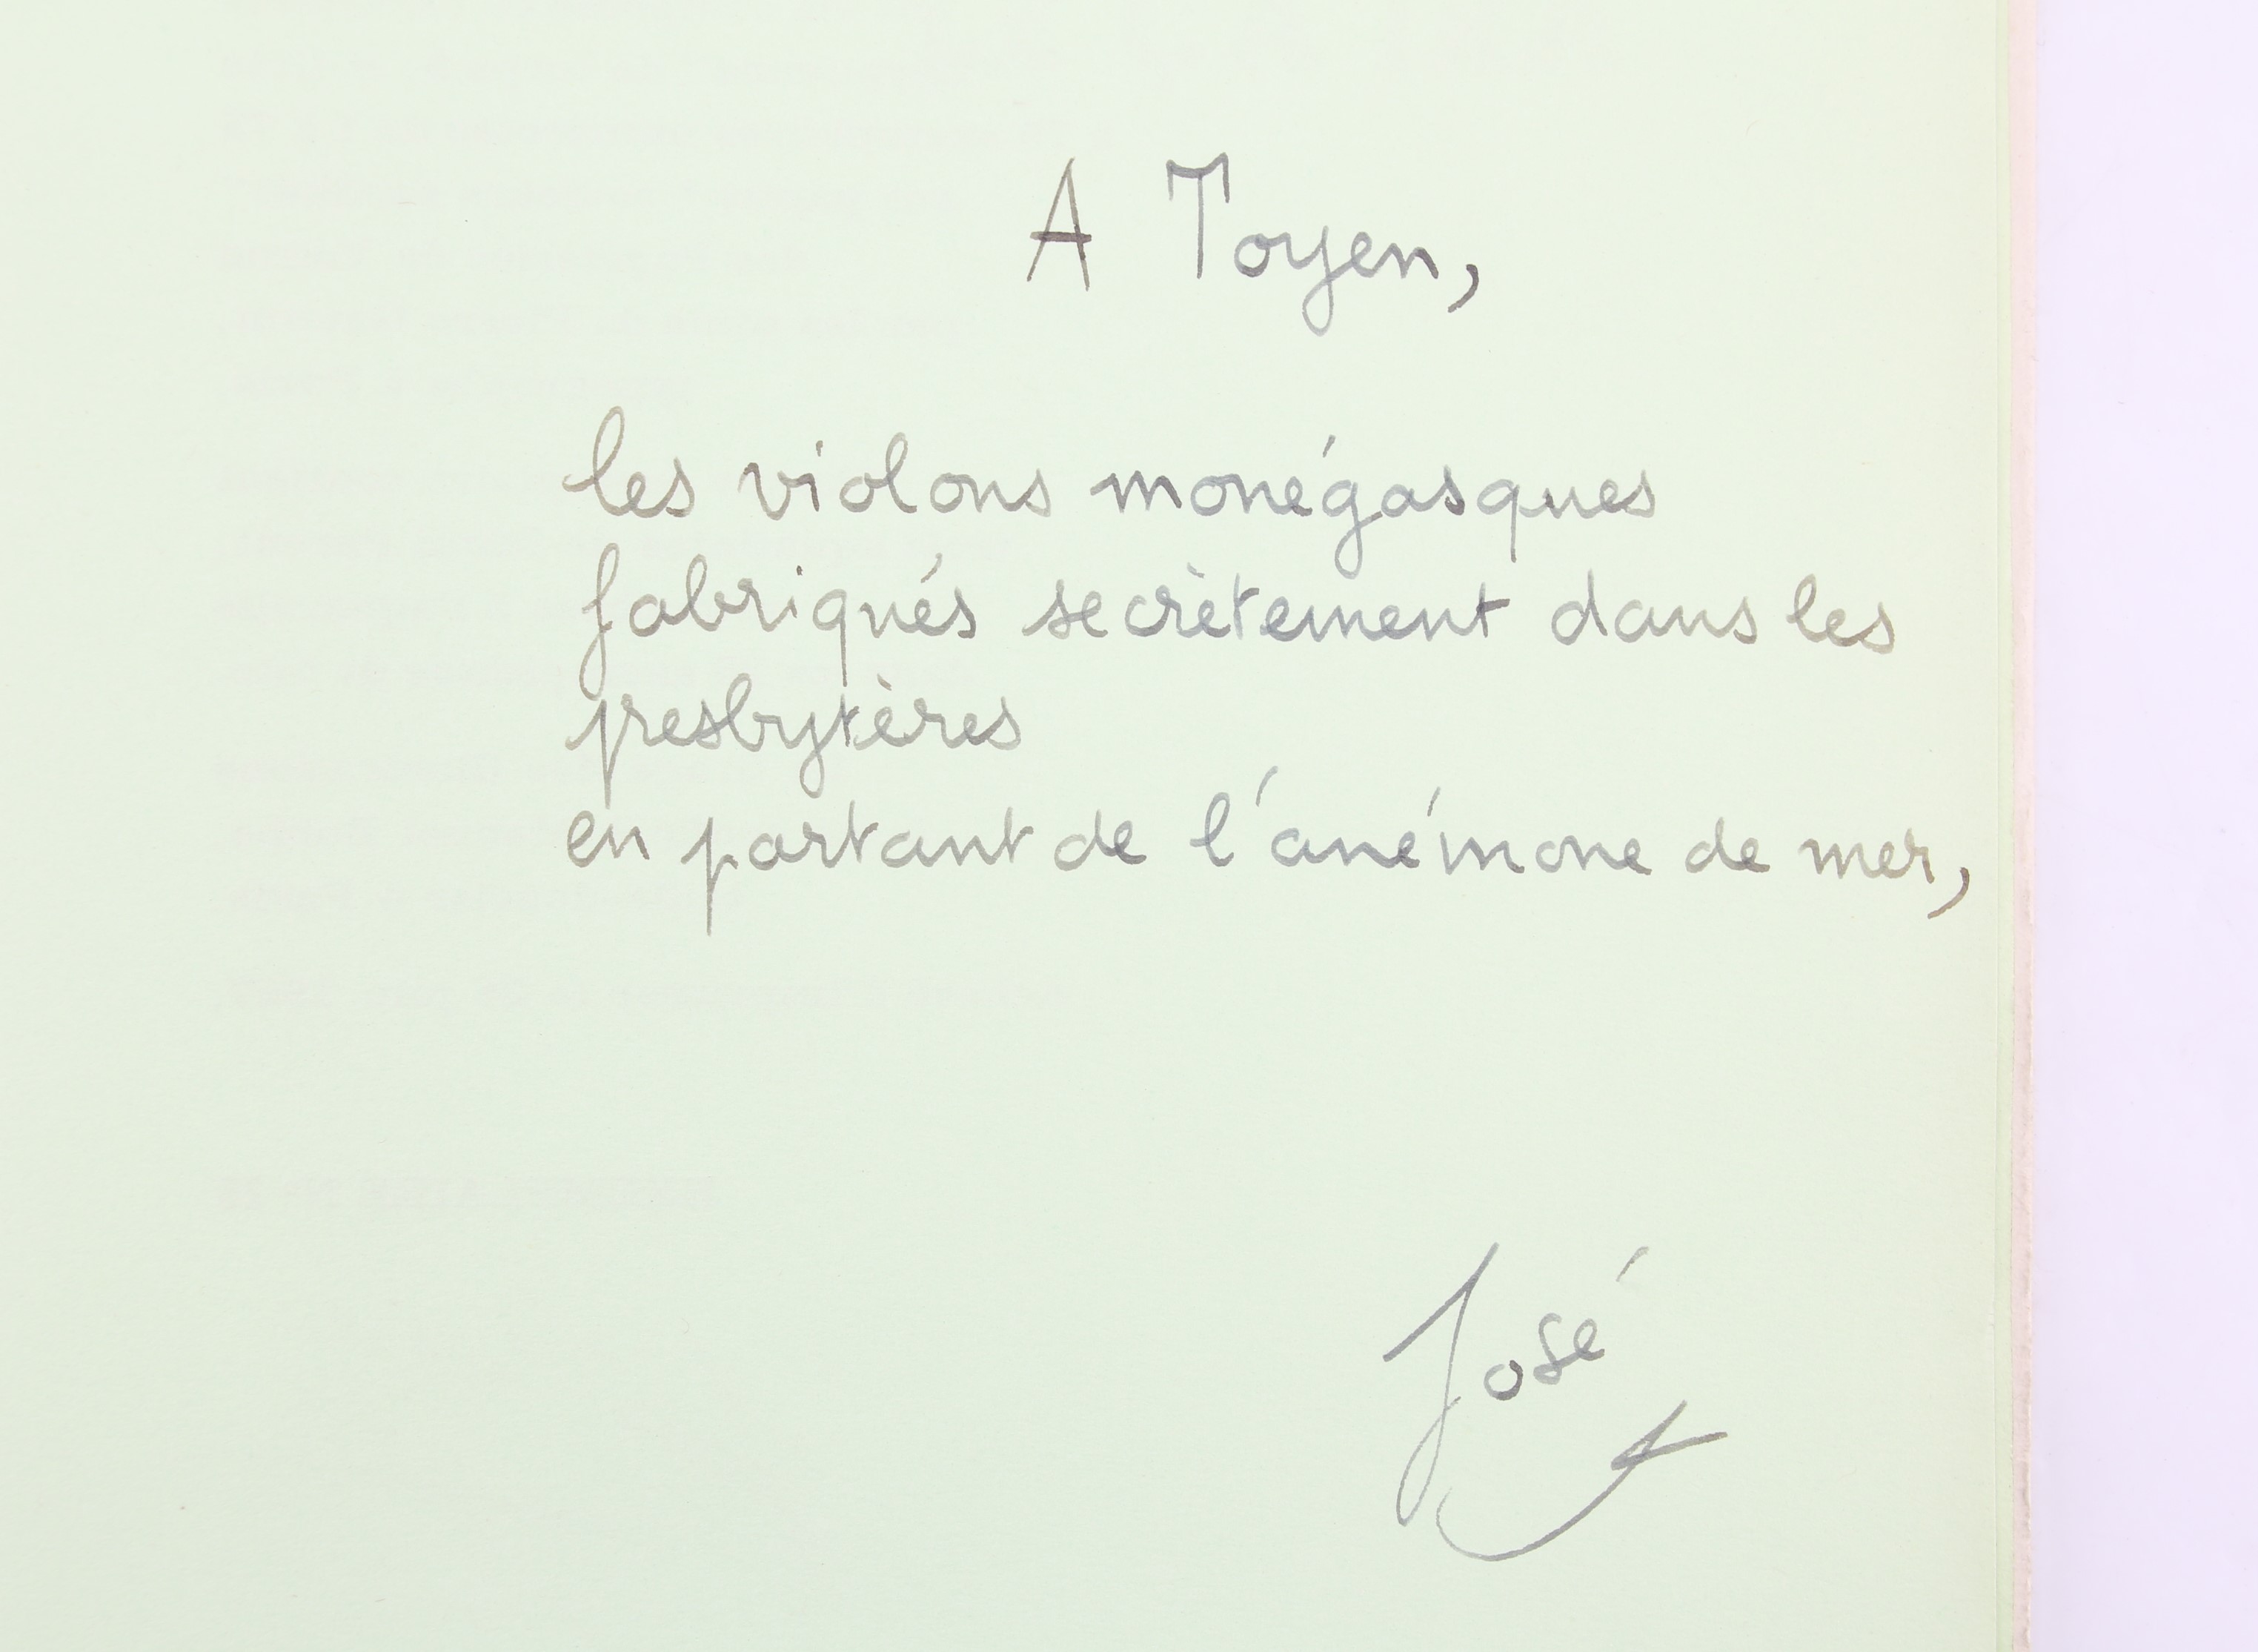 A Toyen,
les violons monégasques
fabriqués secrètement dans les
presbytères
en partant de l'anémone de mer,
José